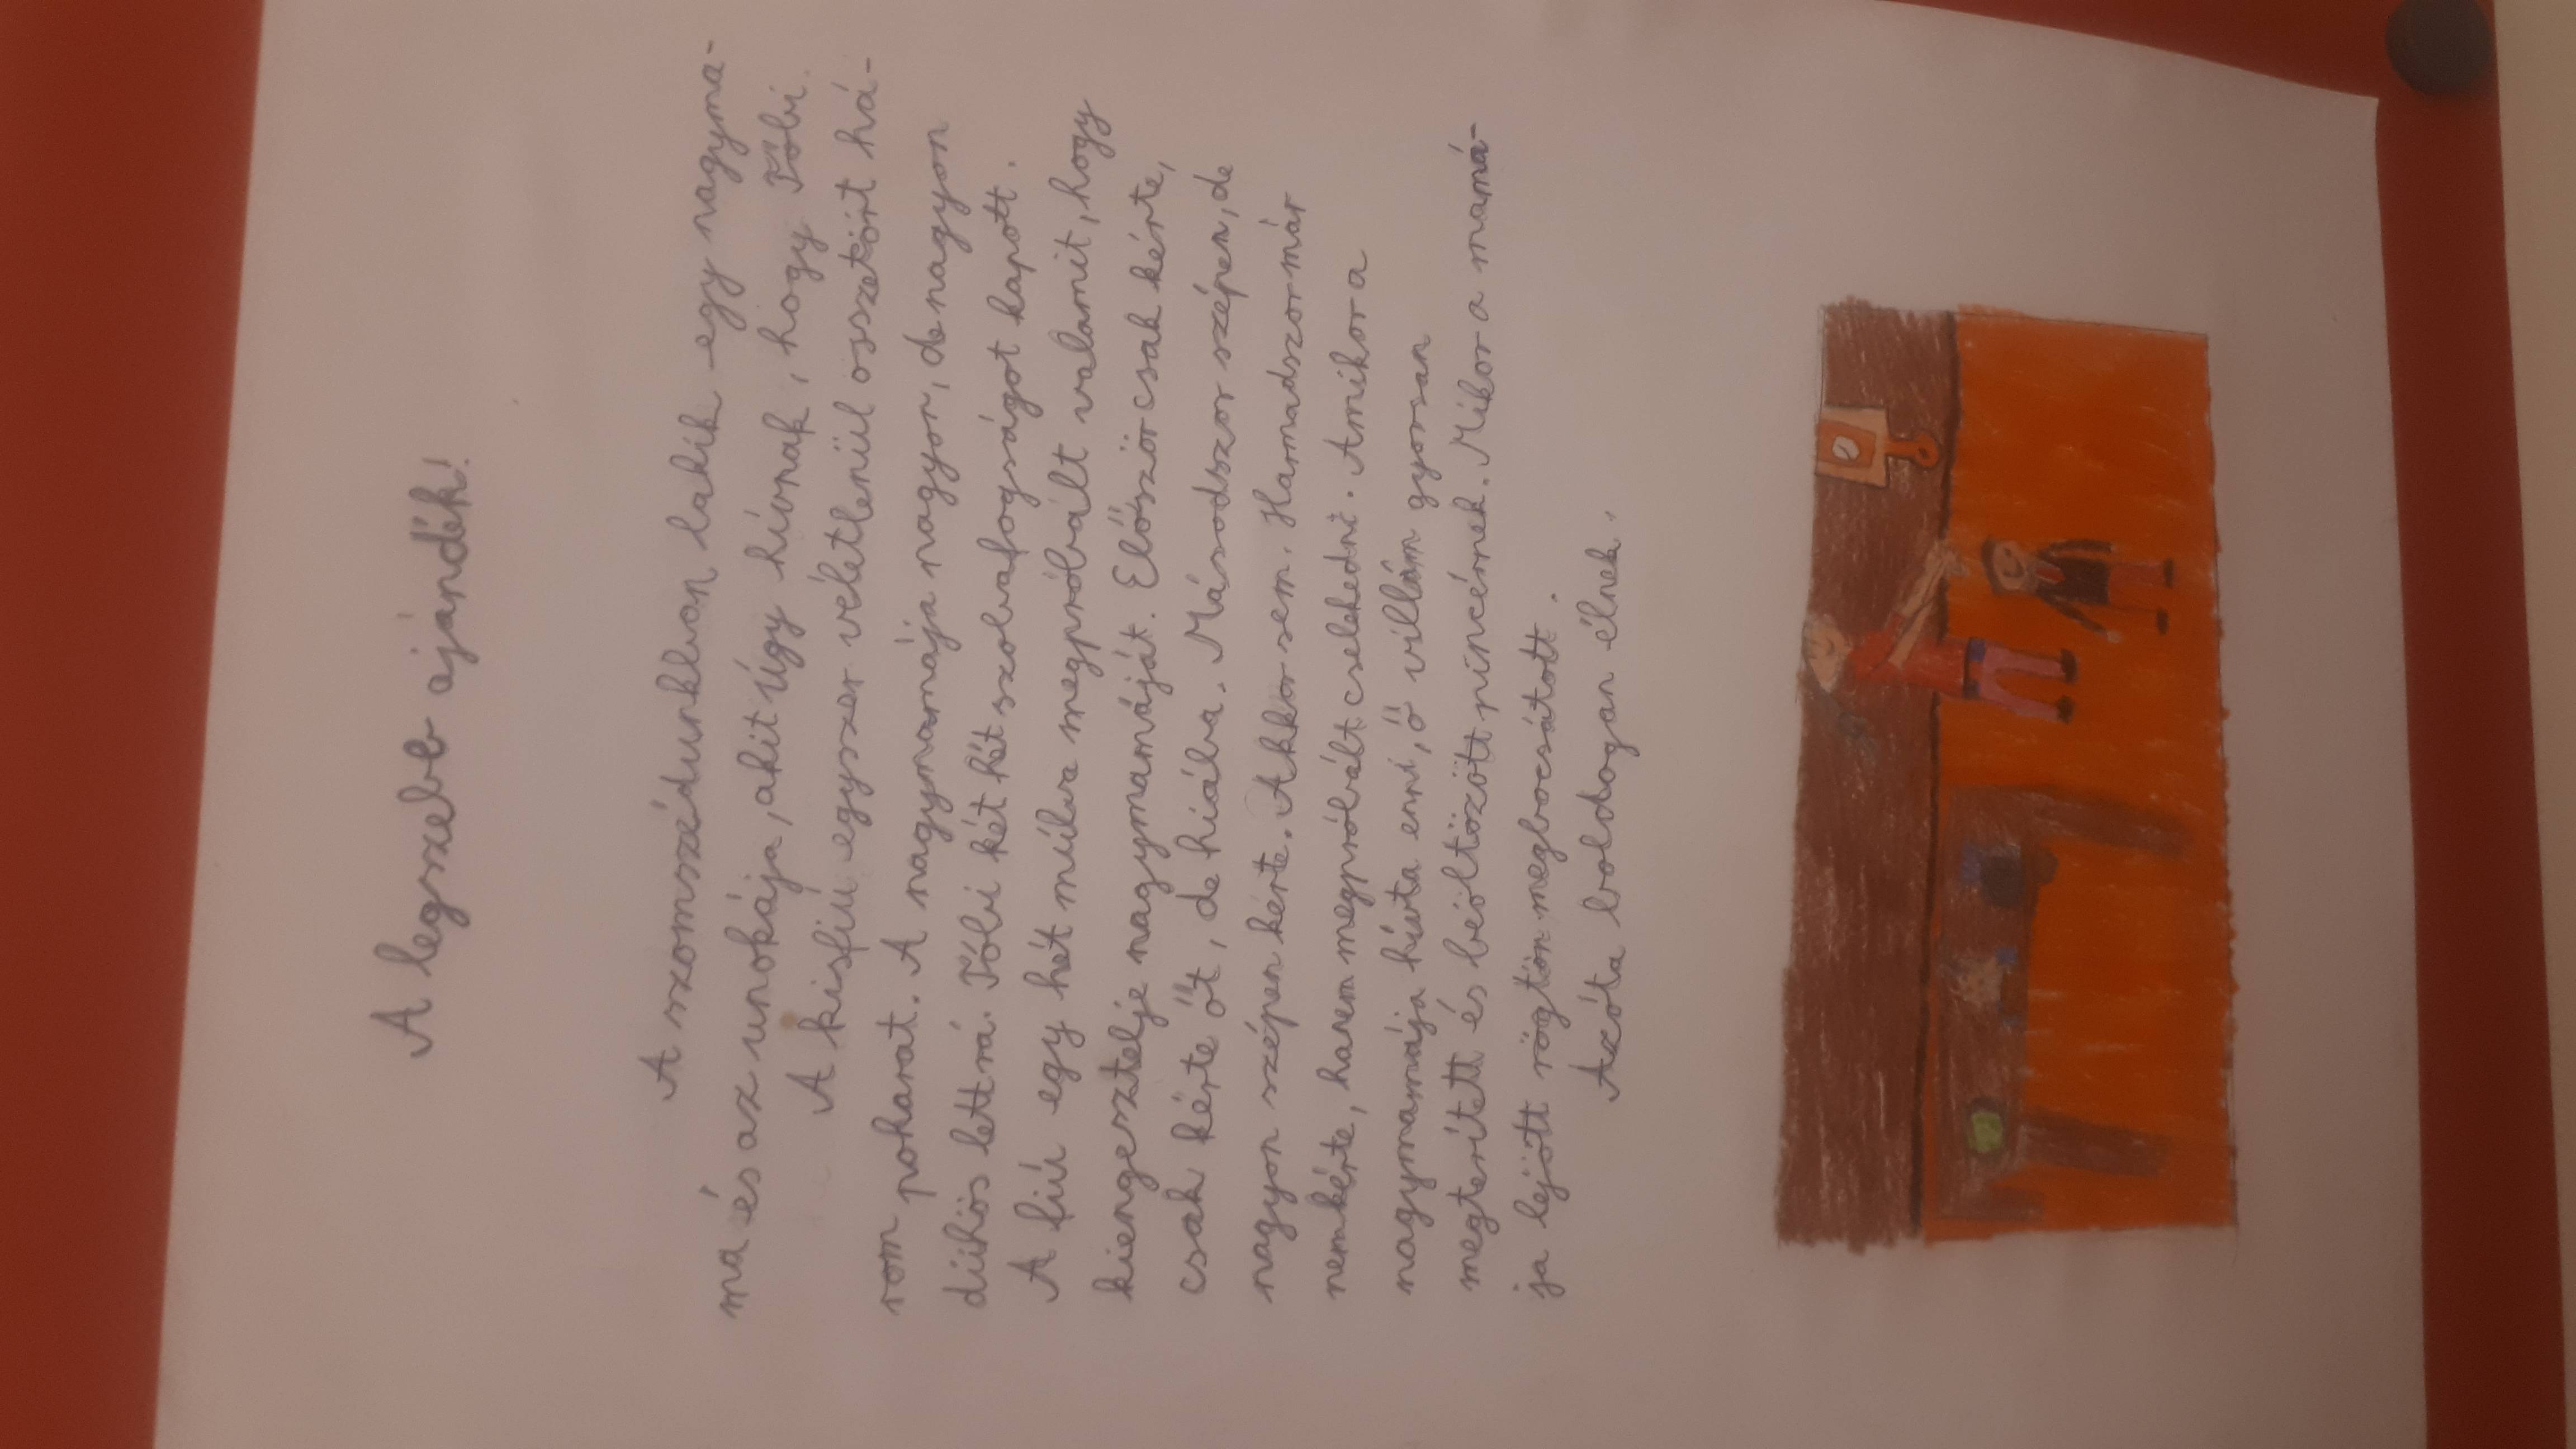 A legszebb ajándék!
A szomszédunkban lakik egy nagyma-
ma és az unokája, akit úgy hívnak, hogy Tóbi.
A kisfiú egyszer véletlenül összetört há-
rom poharat. A nagymamája nagyon, de nagyon
dühös lett rá. Tóbi két hét szobafogságot kapott.
A fiú egy hét múlva megpróbált valamit, hogy
kiengesztelje nagymamáját. Először csak kérte,
csak kérte őt, de hiába. Másodszor szépen, de
nagyon szépen kérte. Akkor sem. Harmadszor már
nem kérte, hanem megpróbált cselekedni. Amikor a
nagymamája hívta enni, ő villám gyorsan
megterített és beöltözött pincérnek. Mikor a mamá-
ja lejött rögtön megbocsátott.
Azóta boldogan élnek.